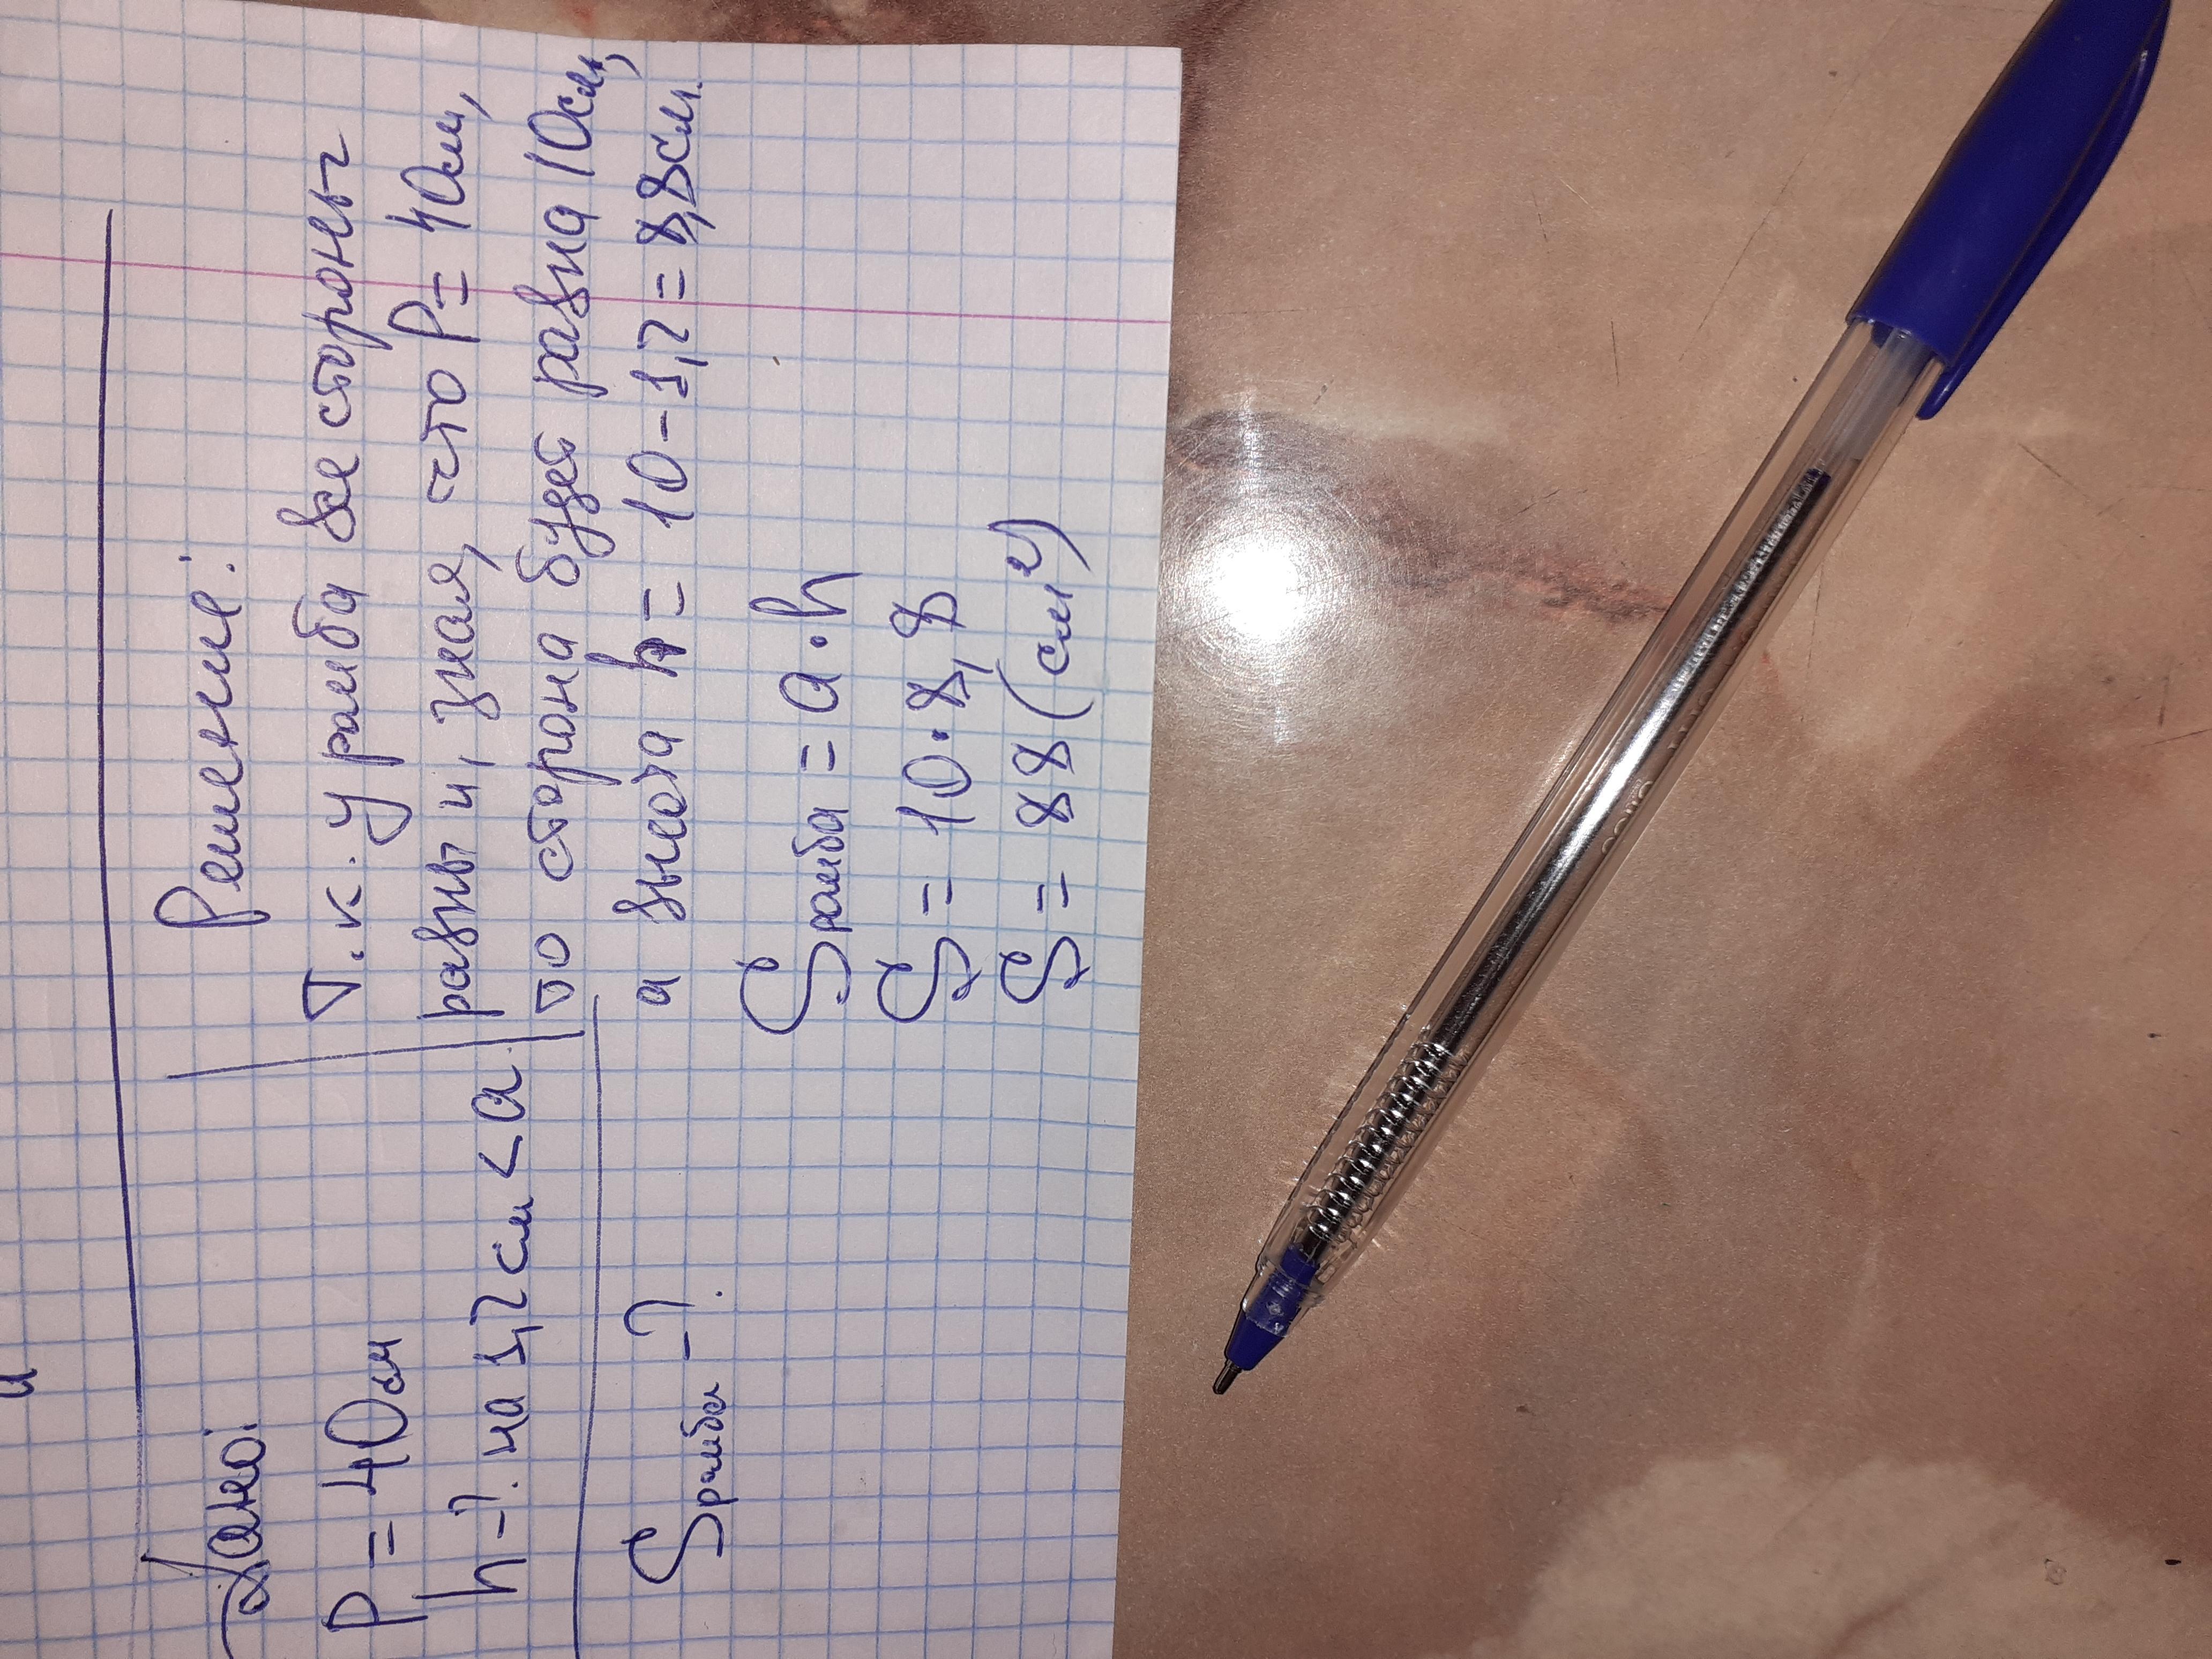 Дано:
P = 40 см
h - ? на 1,2 см < a.
S ромба - ?
Решение:
Т.к. у ромба все стороны
равны и, зная, что P = 40 см,
то сторона будет равна 10 см,
а высота h = 10 - 1,2 = 8,8 см.
S ромба = a · h
S = 10 · 8,8
S = 88 (см²)